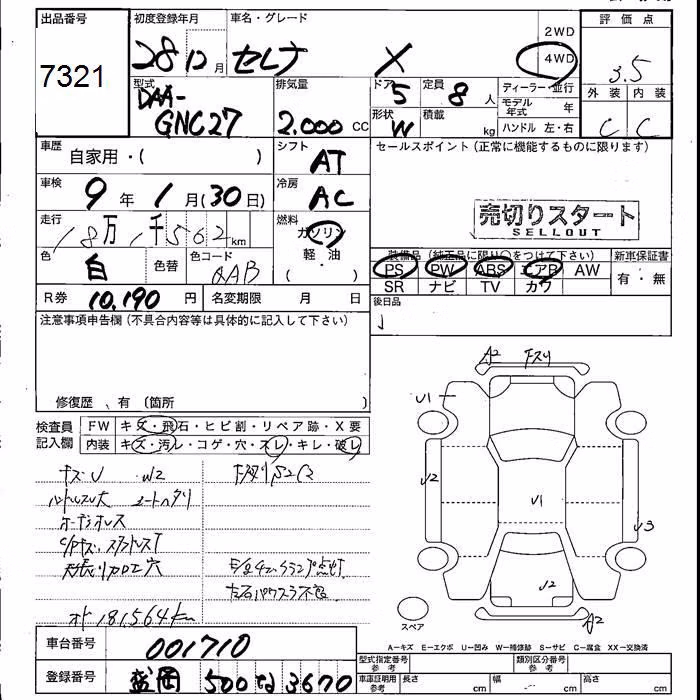 出品番号
7321
初度登録年月
28 12月
車名・グレード
セレナ X
2WD
4WD
評価点
3.5
外装 内装
C C
型式
DAA-
GNC27
排気量
2.000 CC
ドア 5
定員 8 人
形状 W
積載 kg
ディーラー・並行
モデル年式 年
ハンドル 左・右
車歴
自家用・( )
シフト
AT
セールスポイント(正常に機能するものに限ります)
車検
9年 1月(30日)
冷房
AC
売切りスタート
SELLOUT
走行
18万1千562km
燃料
ガソリン
軽・油
( ・ )
色
白
色替
色コード
QAB
装備品(純正品に限り〇をつけて下さい)
PS PW ABS エアB AW
SR ナビ TV カワ
新車保証書
有・無
R券 10,190 円
名変期限 月 日
後日品
注意事項申告欄(不具合内容等は具体的に記入して下さい)
修復歴、有(箇所
検査員記入欄
FW キズ・飛石・ヒビ割・リペア跡・X要
内装 キズ・汚レ・コゲ・穴・スレ・キレ・破レ
キズU W2
ハンドルスレ大 シートヘタリ
オド181,564km
A2 キズリ
U1
U2
U1
U3
U2
A2
スペア
A−キズ E−エクボ U−凹み W−補修跡 S−サビ C−腐食 XX−交換済
車台番号 001710
登録番号 盛岡 500 な 3670
型式指定番号参考
類別区分番号参考
車庫証明用参考
長さ cm
幅 cm
高さ cm